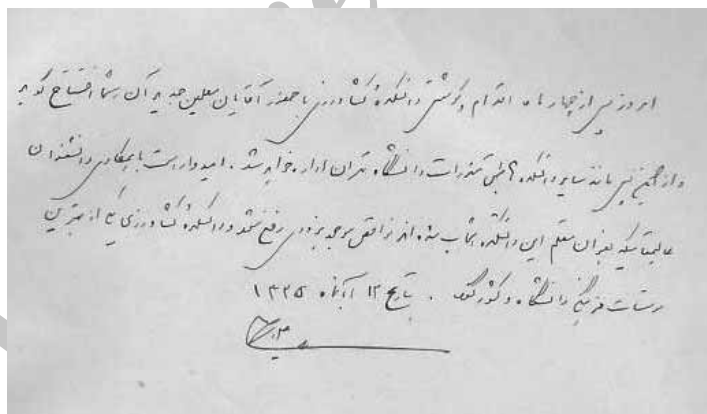 امروز پس از چهار ماه اقدام و کوشش دانشکدهٔ کشاورزی با حضور آقایان معلمین جدید آن رسماً افتتاح گردید
و از همین پس مانند سایر دانشکده‌ها طبق مقررات دانشگاه تهران اداره خواهد شد. امیدوار است با همکاری دانشمندان
عالیمقامیکه بعنوان معلم این دانشکده انتخاب شده‌اند نواقص موجود بزودی رفع شود و دانشکدهٔ کشاورزی یکی از بهترین
مؤسسات فرهنگی دانشگاه و کشور گردد. بتاریخ ۱۲ آبانماه ۱۳۲۵